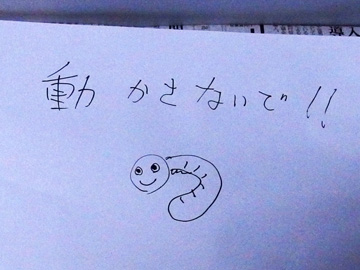 動かさないで!!